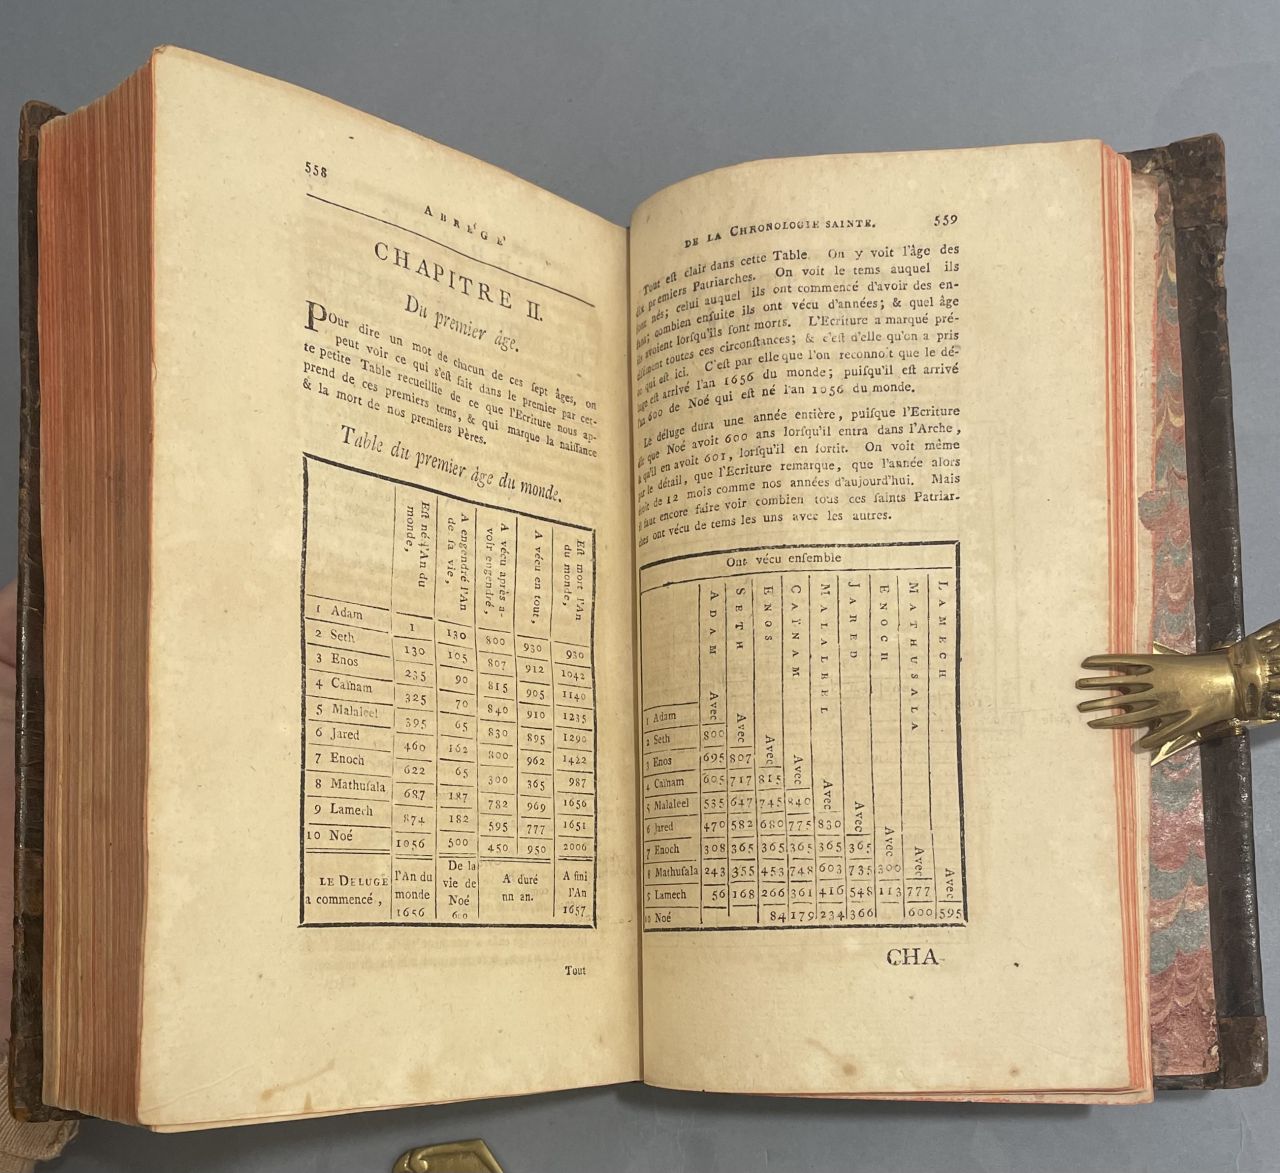 558
ABRÉGÉ
CHAPITRE II.
Du premier âge.
POur dire un mot de chacun de ces ſept âges, on
peut voir ce qui s'eſt fait dans le premier par cet-
te petite Table recueillie de ce que l'Ecriture nous ap-
prend de ces premiers tems, & qui marque la naiſſance
& la mort de nos premiers Pères.
Table du premier âge du monde.
Eſt né l'An du monde, A engendré l'An de ſa vie, A vécu après avoir engendré, A vécu en tout, Eſt mort l'An du monde,
1 Adam 1 130 800 930 930
2 Seth 130 105 807 912 1042
3 Enos 235 90 815 905 1140
4 Caïnam 325 70 840 910 1235
5 Malaleel 395 65 830 895 1290
6 Jared 460 162 800 962 1422
7 Enoch 622 65 300 365 987
8 Mathuſala 687 187 782 969 1656
9 Lamech 874 182 595 777 1651
10 Noé 1056 500 450 950 2006
LE DELUGE a commencé, l'An du monde 1656 De la vie de Noé 600 A duré nn an. A fini l'An 1657
Tout
DE LA CHRONOLOGIE SAINTE. 559
Tout eſt clair dans cette Table. On y voit l'âge des
dix premiers Patriarches. On voit le tems auquel ils
ſont nés; celui auquel ils ont commencé d'avoir des en-
fans; combien enſuite ils ont vécu d'années; & quel âge
ils avoient lorſqu'ils ſont morts. L'Ecriture a marqué pré-
ciſément toutes ces circonſtances; & c'eſt d'elle qu'on a pris
ce qui eſt ici. C'eſt par elle que l'on reconnoît que le dé-
luge eſt arrivé l'an 1656 du monde; puiſqu'il eſt arrivé
l'an 600 de Noé qui est né l'an 1056 du monde.
Le déluge dura une année entière, puiſque l'Ecriture
dit que Noé avoit 600 ans lorſqu'il entra dans l'Arche,
& qu'il en avoit 601, lorſqu'il en ſortit. On voit même
par le détail, que l'Ecriture remarque, que l'année alors
étoit de 12 mois comme nos années d'aujourd'hui. Mais
il faut encore faire voir combien tous ces ſaints Patriar-
ches ont vécu de tems les uns avec les autres.
Ont vécu enſemble
ADAM Avec SETH Avec ENOS Avec CAÏNAM Avec MALALEEL Avec JARED Avec ENOCH Avec MATHUSALA Avec LAMECH Avec
1 Adam
2 Seth 800
3 Enos 695 807
4 Caïnam 605 717 815
5 Malaleel 535 647 745 840
6 Jared 470 582 680 775 830
7 Enoch 308 365 365 365 365 365
8 Mathuſala 243 355 453 748 603 735 300
9 Lamech 56 168 266 361 416 548 113 777
10 Noé 84 179 234 366 600 595
CHA-